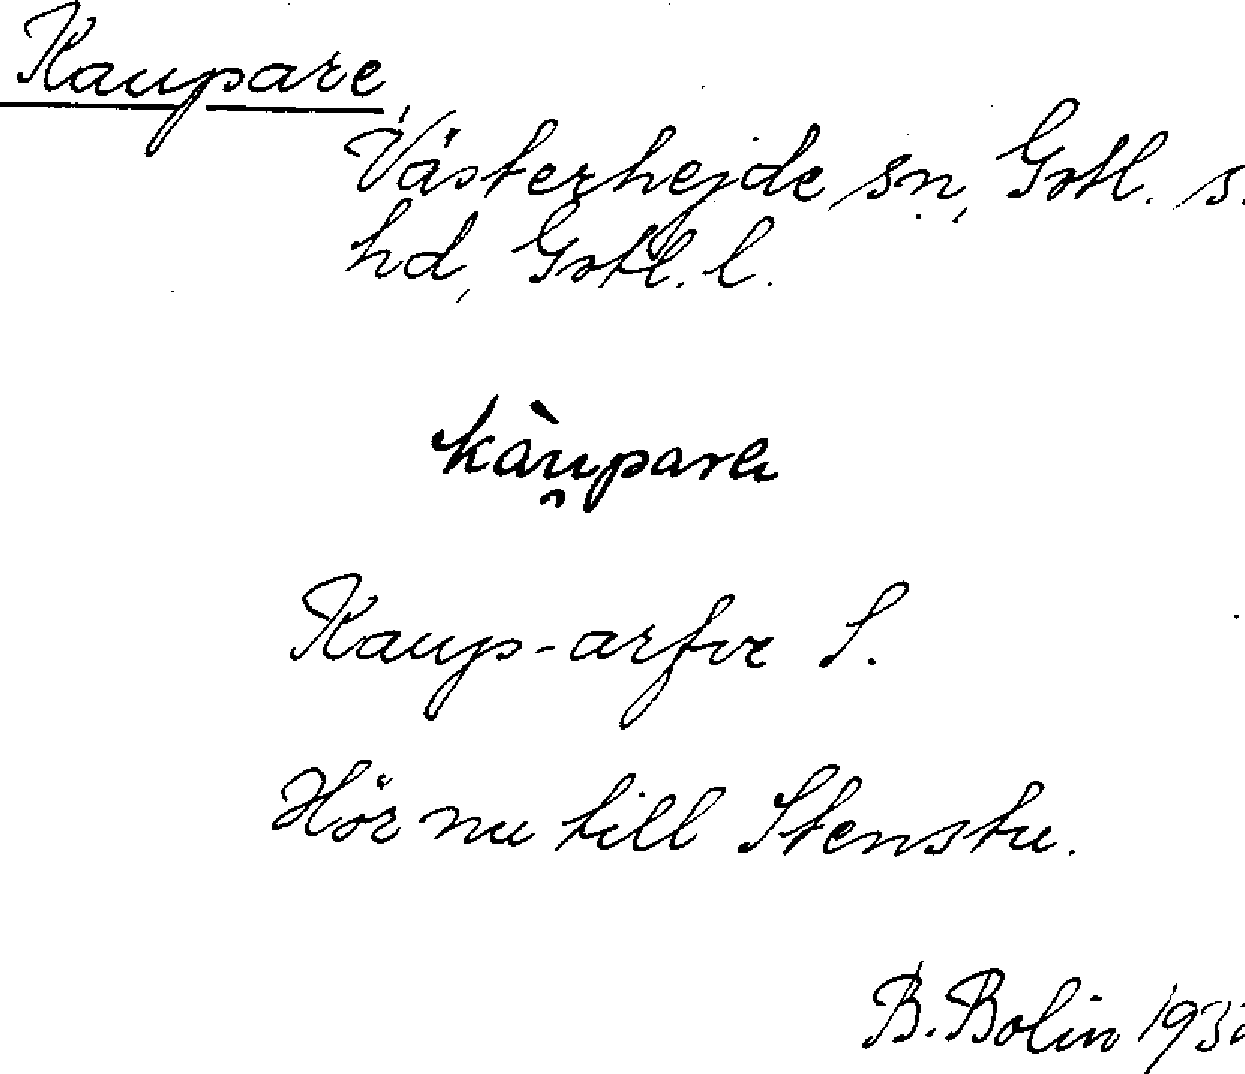 Kaupare
Västerhejde sn, Gotl. s.
hd, Gotl. l.
kàu̯parɐ
Kaup-arfve S.
Hör nu till Stenstu.
B. Bolin